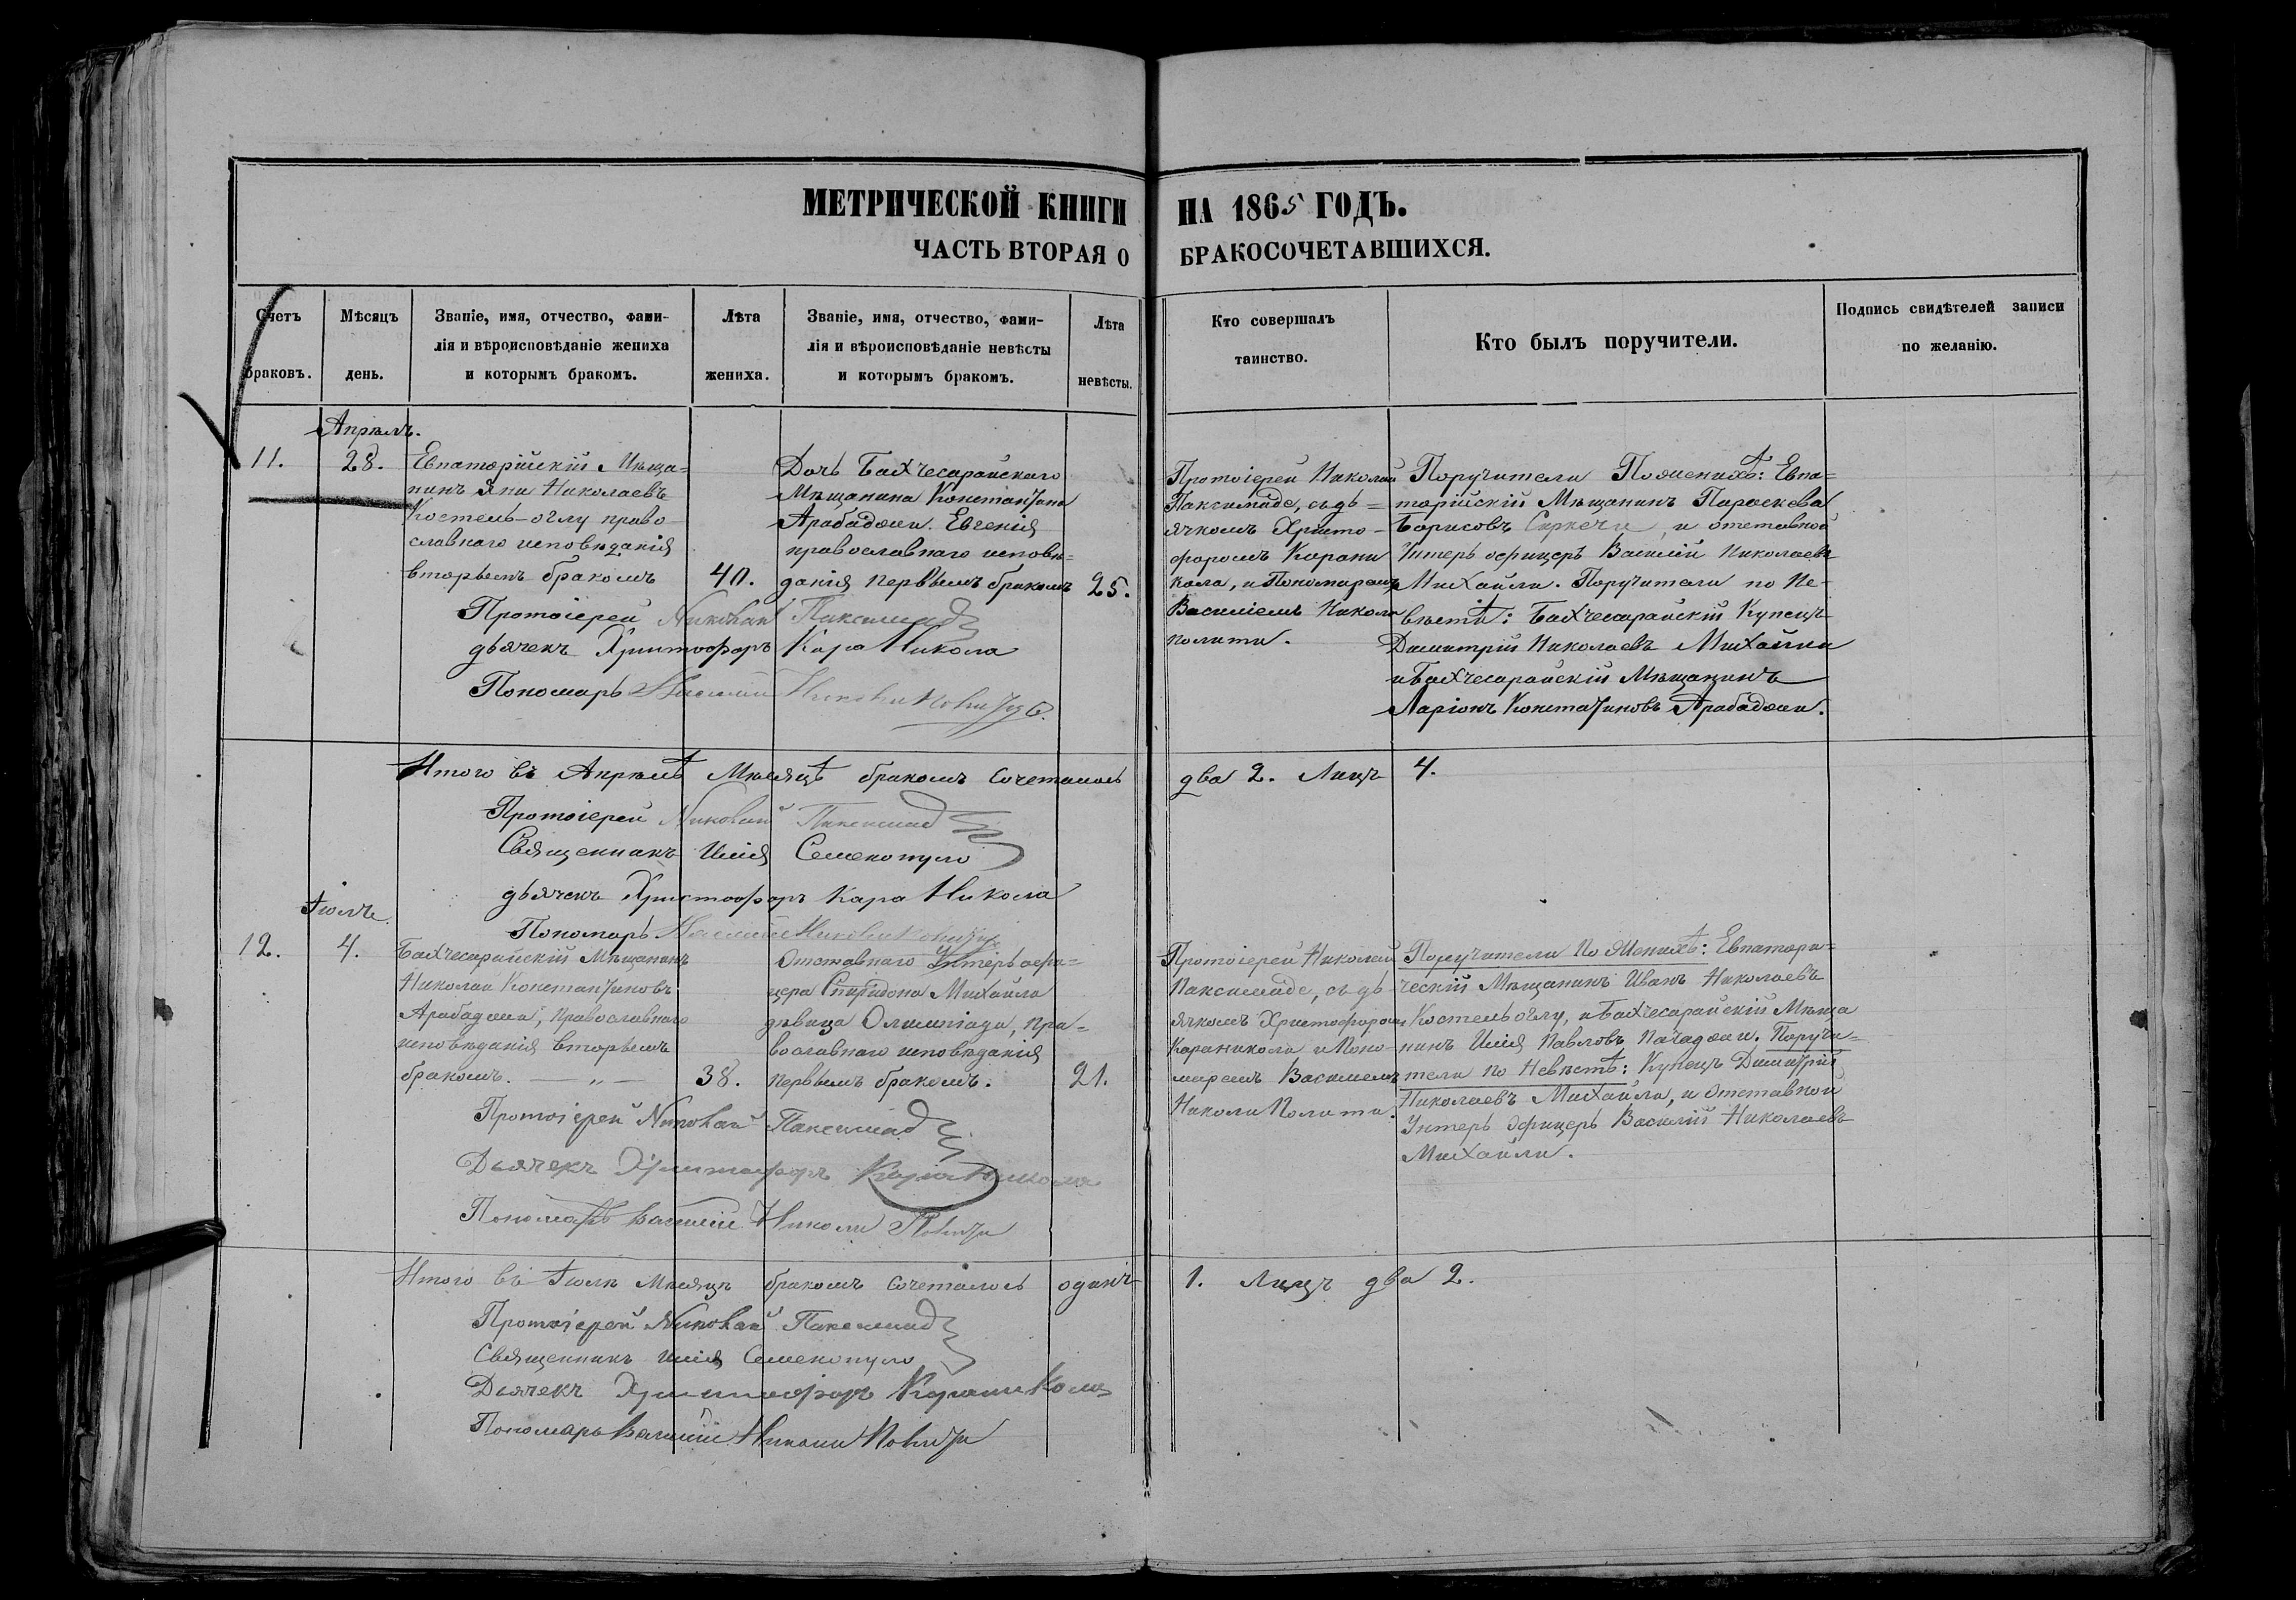 МЕТРИЧЕСКОЙ КНИГИ НА 1865 ГОДЪ.
ЧАСТЬ ВТОРАЯ О БРАКОСОЧЕТАВШИХСЯ.
Счетъ браковъ.
Мѣсяцъ день.
Званіе, имя, отчество, фами-
лія и вѣроисповѣданіе жениха
и которымъ бракомъ.
Лѣта жениха.
Званіе, имя, отчество, фами-
лія и вѣроисповѣданіе невѣсты
и которымъ бракомъ.
Лѣта невѣсты.
Кто совершалъ
таинство.
Кто былъ поручители.
Подпись свидѣтелей записи
по желанію.
Апрѣль.
11.
28.
Евпаторійскій Мѣща=
нинъ Яни Николаевъ
Костель-оглу право-
славнаго исповѣданія
вторымъ бракомъ
40.
Дочь Бахчесарайскаго
Мѣщанина Константина
Арабаджи. Евгенія
православнаго исповѣ=
данія первымъ бракомъ
25.
Протоіерей Николай
Паксимаде, съ дь=
ячкомъ Христо-
форомъ Карани
кола, и Пономаремъ
Василіемъ Никола
полити.
Поручители По женихѣ: Евпа=
торійскій Мѣщанинъ Параскева
Борисовъ и отставной
Унтеръ офицеръ Василій Николаевъ
Михайли. Поручители по Не-
вѣстѣ: Бахчесарайскій Купецъ
Димитрій Николаевъ Михайли
и Бахчесарайскій Мѣщанинъ
Ларіонъ Константиновъ Арабаджи.
Протоіерей Николай Паксимад
дьячекъ Христофоръ Кара Никола
Пономарь Василій
Итого въ Апрѣлѣ Мѣсяцѣ бракомъ сочеталось два 2. Лицъ 4.
Протоіерей Николай Паксимад
Священникъ Илія Семенопуло
дьячекъ Христофоръ Кара Никола
Пономарь Василій Николи Полити
Іюль.
12.
4.
Бахчесарайскій Мѣщанинъ
Николай Константиновъ
Арабаджи, православнаго
исповѣданія вторымъ
бракомъ. — „ —
38.
Отставнаго Унтеръ офи=
цера Спиридона Михайли
дѣвица Олимпіада, пра=
вославнаго исповѣданія
первымъ бракомъ.
21.
Протоіерей Николай
Паксимаде, съ дь-
ячкомъ Христофоромъ
Караникола и Поно-
маремъ Василіемъ
Николи Полити.
Поручители По Женихѣ: Евпатори=
ческій Мѣщанинъ Иванъ Николаевъ
Костель оглу, и Бахчесарайскій Мѣща
нинъ Илія Павловъ Пачаджи. Поручи=
тели по Невѣстѣ: Купецъ Димитрій
Николаевъ Михайли, и Отставной
Унтеръ Офицеръ Василій Николаевъ
Михайли.
Протоіерей Николай Паксимад
Дьячекъ Христофоръ Кара Никола
Пономарь Василій Николи Полити
Итого въ Іюлѣ Мѣсяцѣ бракомъ сочеталось одинъ 1. Лицъ два 2.
Протоіерей Николай Паксимад
Священникъ Илія Семенопуло
Дьячекъ Христофоръ Караникола
Пономарь Василій Николи Полити